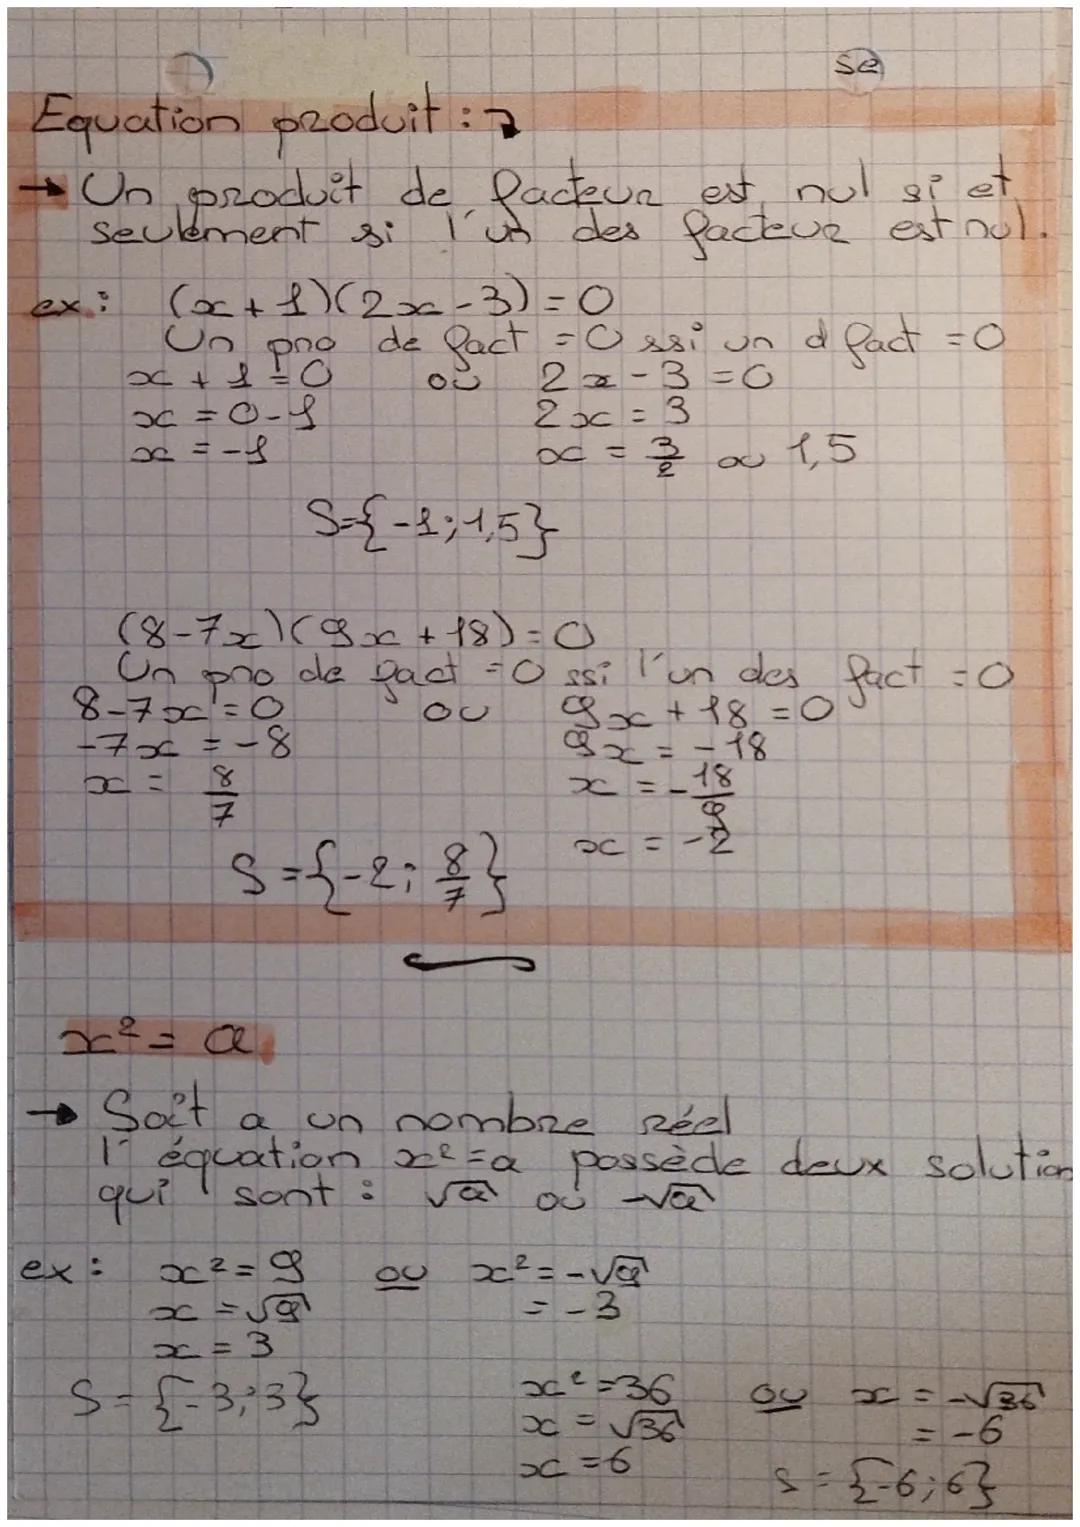 se
Equation produit :
→ Un produit de facteur est nul si et
seulement si l'un des facteur est nul.
ex : (x + 1)(2x - 3) = 0
Un pro de fact = 0 ssi un d fact = 0
x + 1 = 0 ou 2x - 3 = 0
x = 0 - 1 2x = 3
x = -1 x = 3/2 ou 1,5
S={-1;1,5}
(8-7x)(9x + 18) = 0
Un pro de fact = 0 ssi l'un des fact = 0
8-7x = 0 ou 9x + 18 = 0
-7x = -8 9x = -18
x = 8/7 x = -18/9
x = -2
S = {-2; 8/7}
x² = a
→ Soit a un nombre réel
l'équation x² = a possède deux solution
qui sont : √a ou -√a
ex : x² = 9 ou x² = -√9
x = √9 = -3
x = 3
S = {-3;3} x² = 36 ou x = -√36
x = √36 = -6
x = 6 S = {-6;6}